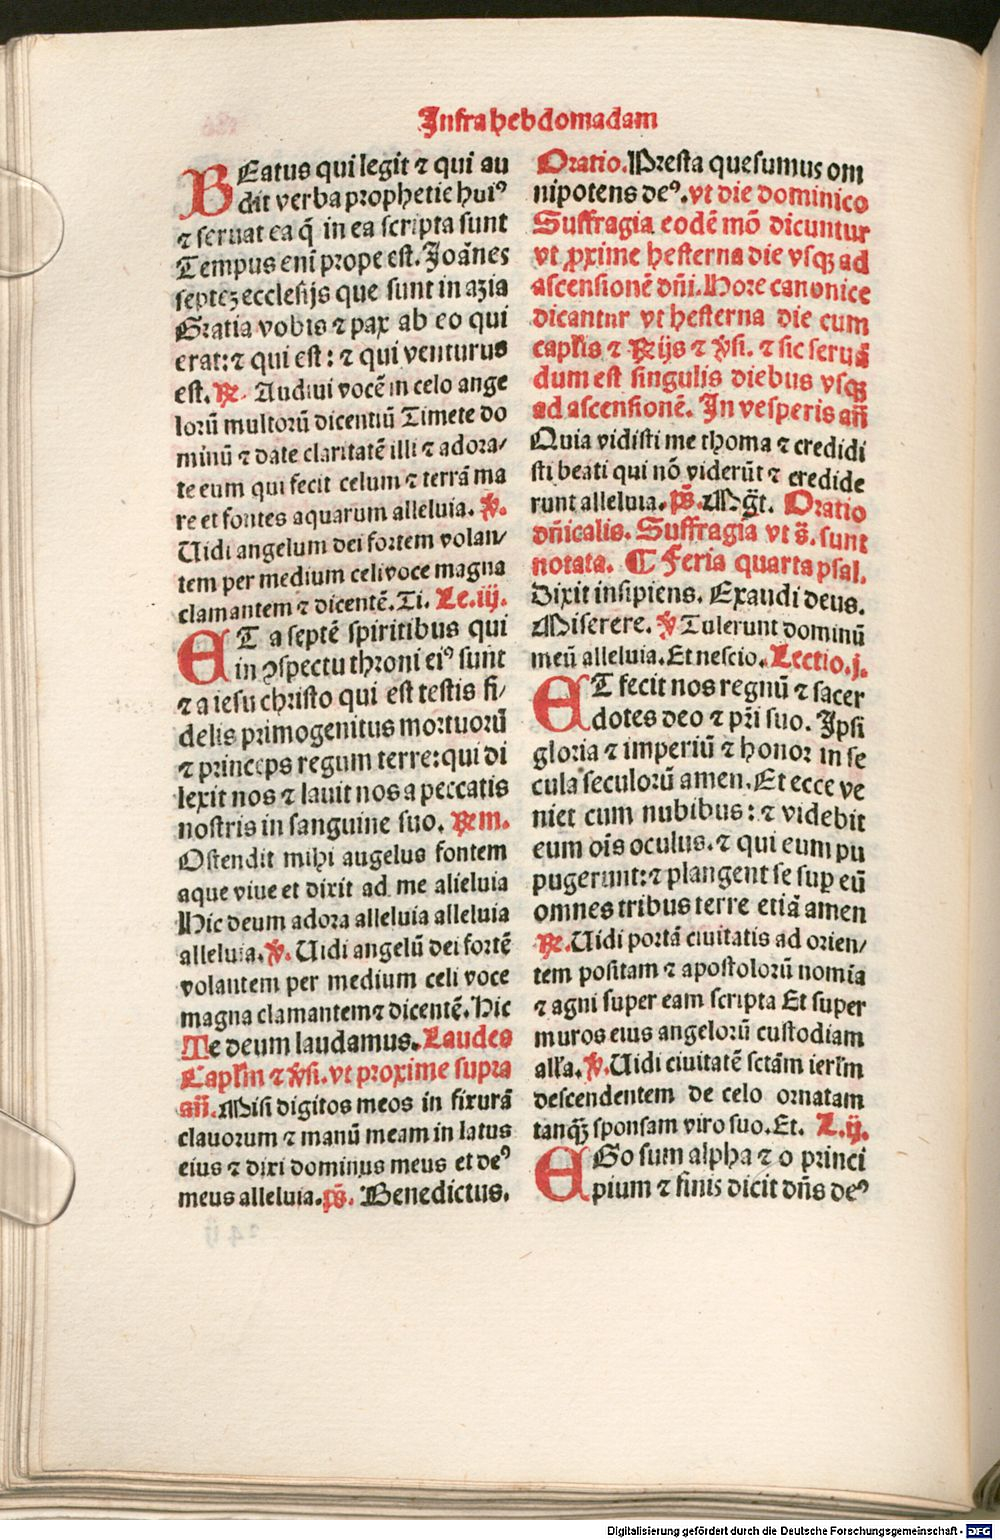 Infra hebdomadam
BEatus qui legit ⁊ qui au
dit verba prophetie huiꝰ
⁊ seruat ea q̄ in ea scripta sunt
Tempus eni̅ prope est. Joānes
septeꝫ ecclesijs que sunt in azia
Gratia vobis ⁊ pax ab eo qui
erat: ⁊ qui est: ⁊ qui venturus
est. ℟. Audiui vocē in celo ange
lorū multorū dicentiū Timete do
minū ⁊ date claritatē illi ⁊ adora/
te eum qui fecit celum ⁊ terrā ma
re et fontes aquarum alleluia. ℣.
Uidi angelum dei fortem volan/
tem per medium celi voce magna
clamantem ⁊ dicentē. Ti. Le. iij.
ET a septē spiritibus qui
in ꝯspectu throni eiꝰ sunt
⁊ a iesu christo qui est testis fi/
delis primogenitus mortuorū
⁊ princeps regum terre: qui di
lexit nos ⁊ lauit nos a peccatis
nostris in sanguine suo. ℟m.
Ostendit mihi augelus fontem
aque viue et dixit ad me alleluia
Hic deum adora alleluia alleluia
alleluia. ℣. Uidi angelū dei fortē
volantem per medium celi voce
magna clamantem ⁊ dicentē. Hic
Te deum laudamus. Laudes
Capl̄m ⁊ ℣si. vt proxime supra
añ. Misi digitos meos in fixurā
clauorum ⁊ manū meam in latus
eius ⁊ dixi dominus meus et deꝰ
meus alleluia. ps̄. Benedictus.
Oratio. Presta quesumus om
nipotens deꝰ. vt die dominico
Suffragia eodē mō dicuntur
vt ꝓxime hesterna die vsqꝫ ad
ascensionē dñi. Hore canonice
dicantur vt hesterna die cum
capl̄is ⁊ ℟ijs ⁊ ℣si. ⁊ sic seruā
dum est singulis diebus vsqꝫ
ad ascensionē. In vesperis añ
Quia vidisti me thoma ⁊ credidi
sti beati qui nō viderūt ⁊ credide
runt alleluia. ps̄. Mḡt. Oratio
dñicalis. Suffragia vt s̄. sunt
notata. ¶ Feria quarta psal.
Dixit insipiens. Exaudi deus.
Miserere. ℣ Tulerunt dominū
meū alleluia. Et nescio. Lectio. j.
ET fecit nos regnū ⁊ sacer
dotes deo ⁊ pr̄i suo. Ipsi
gloria ⁊ imperiū ⁊ honor in se
cula seculorū amen. Et ecce ve
niet cum nubibus: ⁊ videbit
eum oīs oculus. ⁊ qui eum pu
pugerunt: ⁊ plangent se suꝑ eū
omnes tribus terre etiā amen
℟. Uidi portā ciuitatis ad orien/
tem positam ⁊ apostolorū nomia
⁊ agni super eam scripta Et super
muros eius angelorū custodiam
all̄a. ℣. Uidi ciuitatē sctām ierl̄m
descendentem de celo ornatam
tanqꝫ sponsam viro suo. Et. L. ij.
EGo sum alpha ⁊ o princi
pium ⁊ finis dicit dn̄s deꝰ
Digitalisierung gefördert durch die Deutsche Forschungsgemeinschaft - DFG